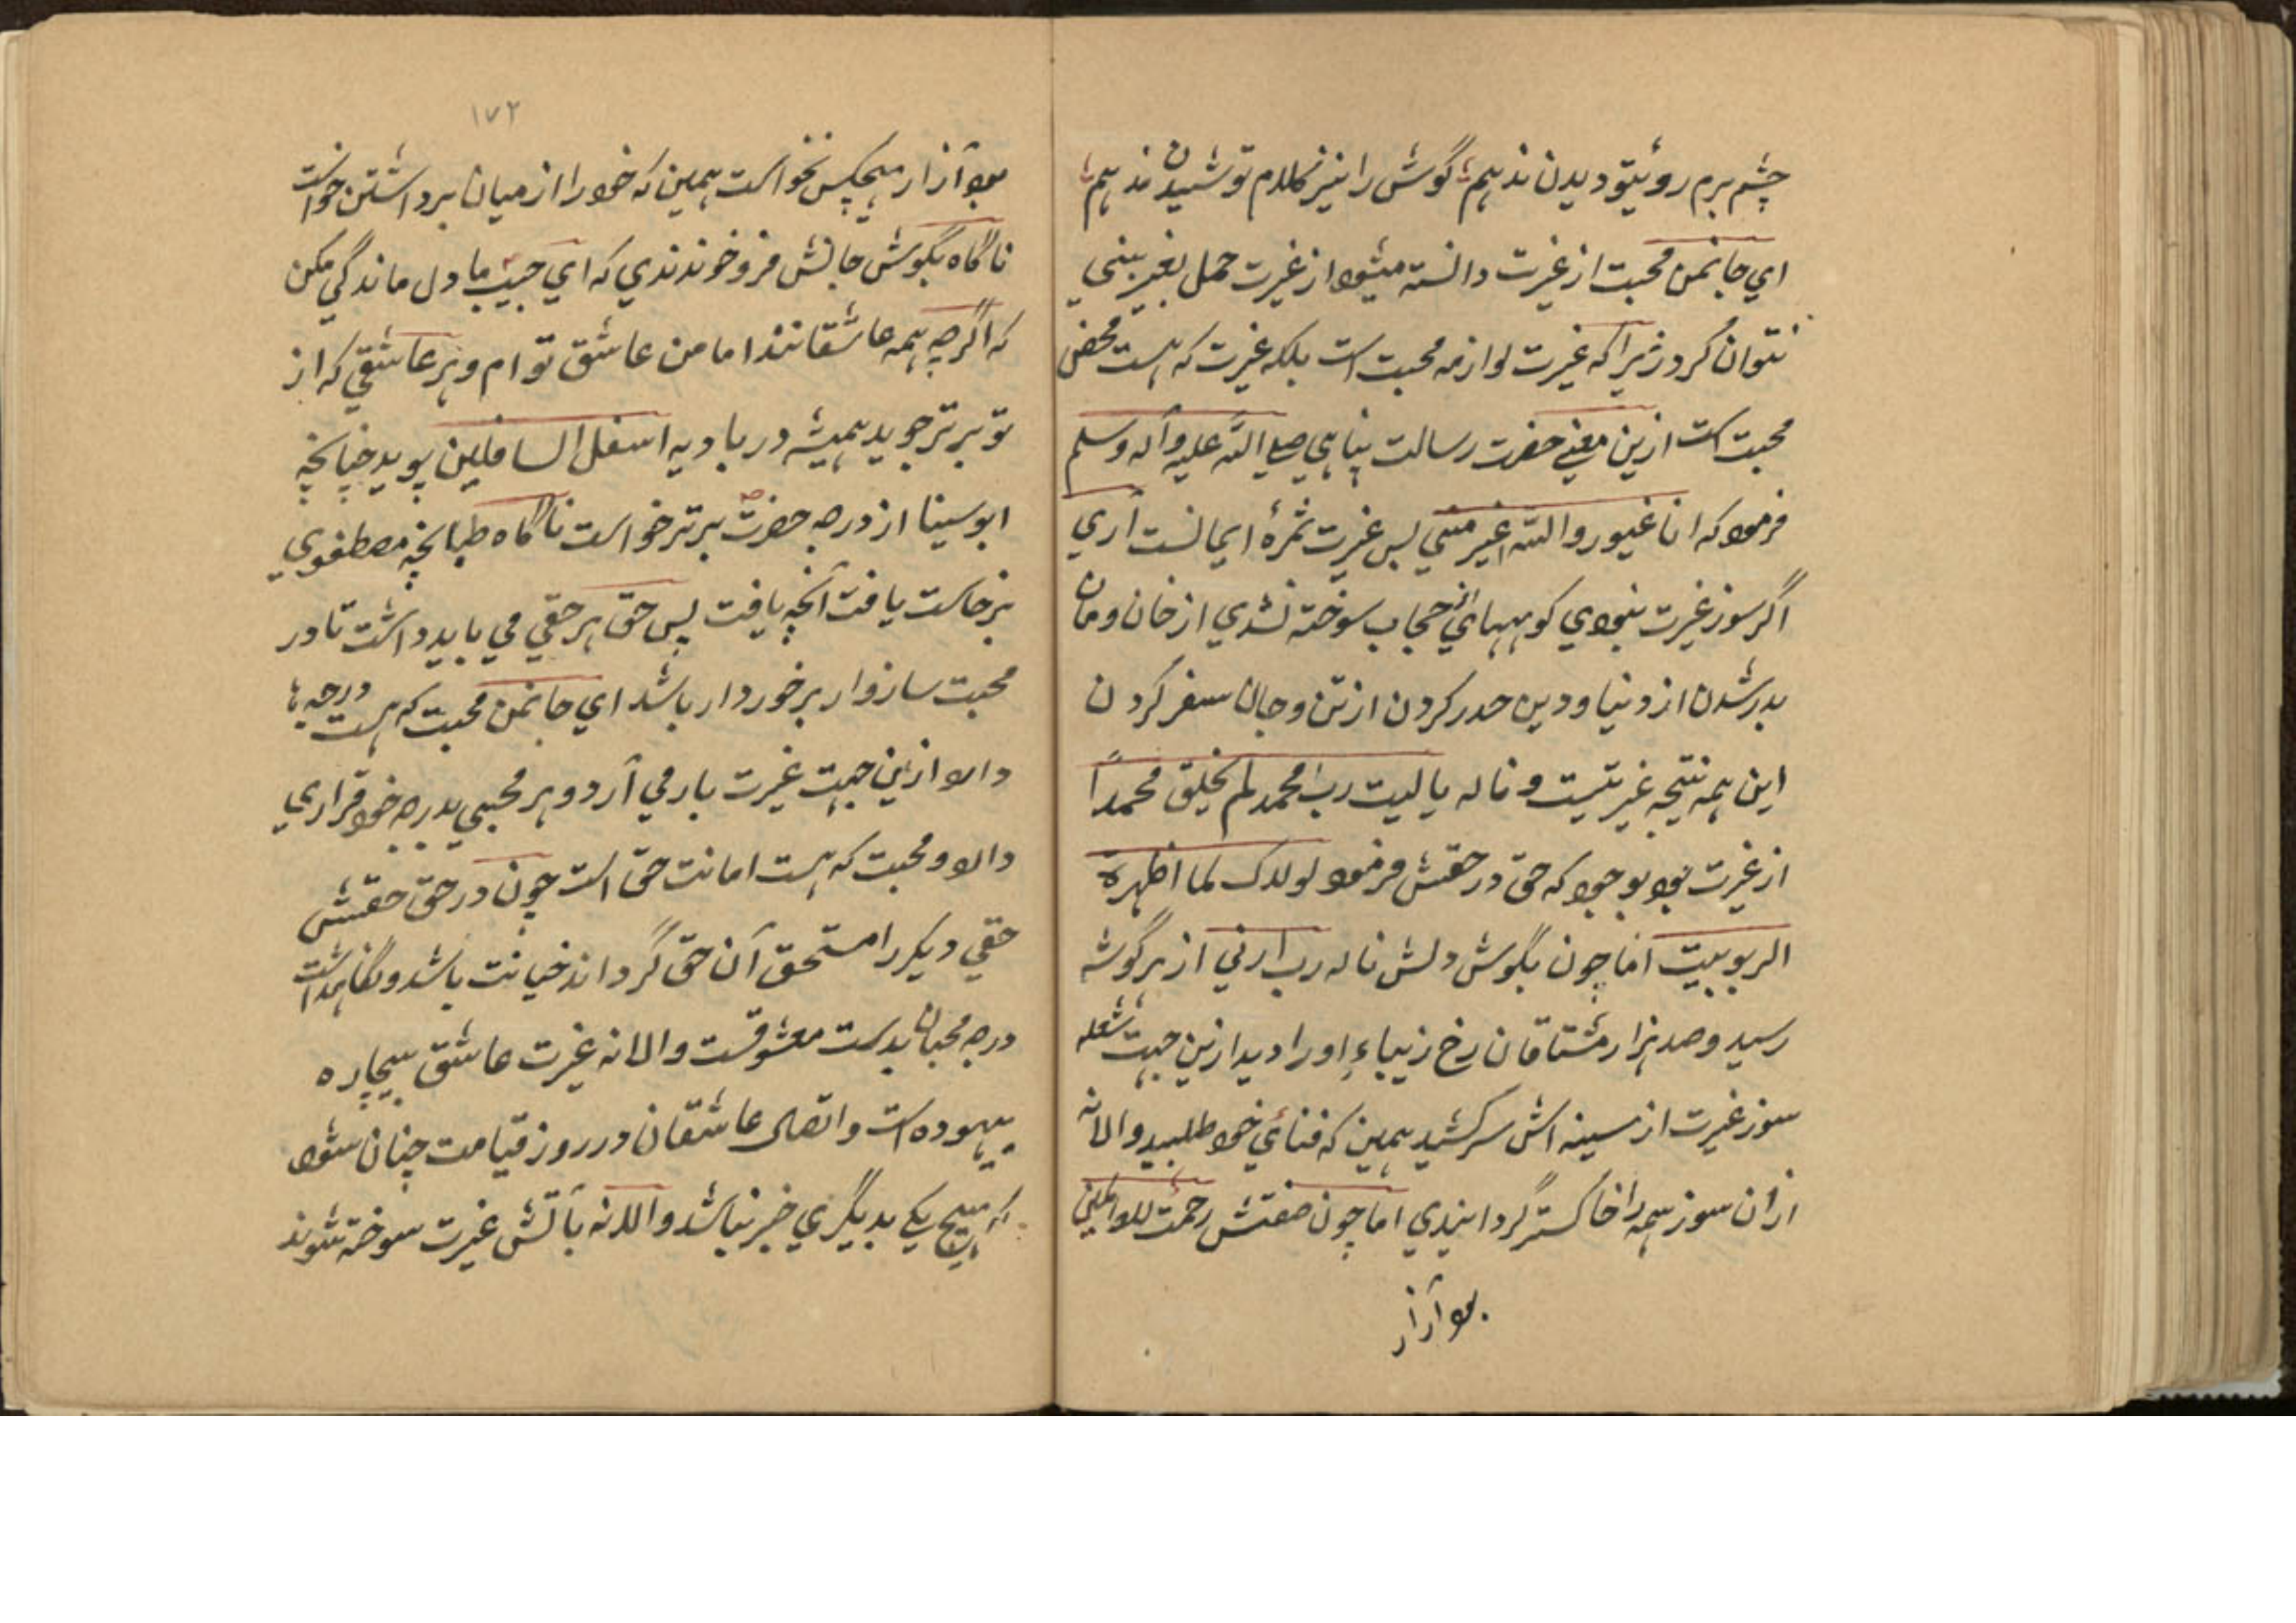 چشم برم روئیتو دیدن ندهیم گوش را نیز کلام تو شنیدن ندهیم
ای جانمن محبت از غیرت دانسته میشود از غیرت حمل بغیر بینی
نتوان کرد زیرا که غیرت لوازمه محبت است بلکه غیرت که هست محض
محبت است ازین معنی حضرت رسالت پناهی صلی الله علیه وآله وسلم
فرمود که انا غیور والله اغیر منی پس غیرت ثمرهٔ ایمانست آری
اگر سوز غیرت نبودی کوههای حجاب سوخته نشدی از خان ومان
بدر شدن از دنیا و دین حدر کردن از تن و جان سفر کردن
این همه نتیجه غیرتیست و ناله یا لیت رب محمد لم یخلق محمداً
از غیرت بود بوجود که حق در حقش فرمود لولاک لما اظهرة
الربوبیت اما چون بگوش دلش ناله رب ارنی از هر گوشه
رسید و صد هزار مشتاقان رخ زیباء او را دید ازین جهت شعله
سوز غیرت از سینه اش سر کشید همین که فنائی خود طلبید و الا نه
از ان سوز همه را خاکستر گردانیدی اما چون صفتش رحمت للعالمین
بود آزار
۱۷۲
بود آزار هیچکس نخواست همین که خود را از میان برداشتن خواست
ناگاه بگوش جانش فرو خوندندی که ای حبیب ما دل ماندگی مکن
که اگرچه همه عاشقانند اما من عاشق تو ام و هر عاشقی که از
تو برتر جوید همیشه در بادیه اسفل السافلین پوید چنانچه
ابو سینا از درجه حضرت برتر خواست ناگاه طبانچه مصطفوی
برخاست یافت آنچه یافت پس حق هر حقی می باید داشت تا در
محبت سازوار برخوردار باشد ای جانمن محبت که هست درجه ها
دارد ازین جهت غیرت بار می آرد و هر محبی بدرجه خود قراری
دارد و محبت که هست امانت حق است چون در حق حقش
حقی دیکر را مستحق آن حق گرداند خیانت باشد و نگاهداشت
درجه محبان بدست معشوقست و الا نه غیرت عاشق بیچاره
بیهوده است و اتصال عاشقان در روز قیامت چنان شود
که هیچ یکی بدیگری خبر نباشد و الا نه بآتش غیرت سوخته شوند